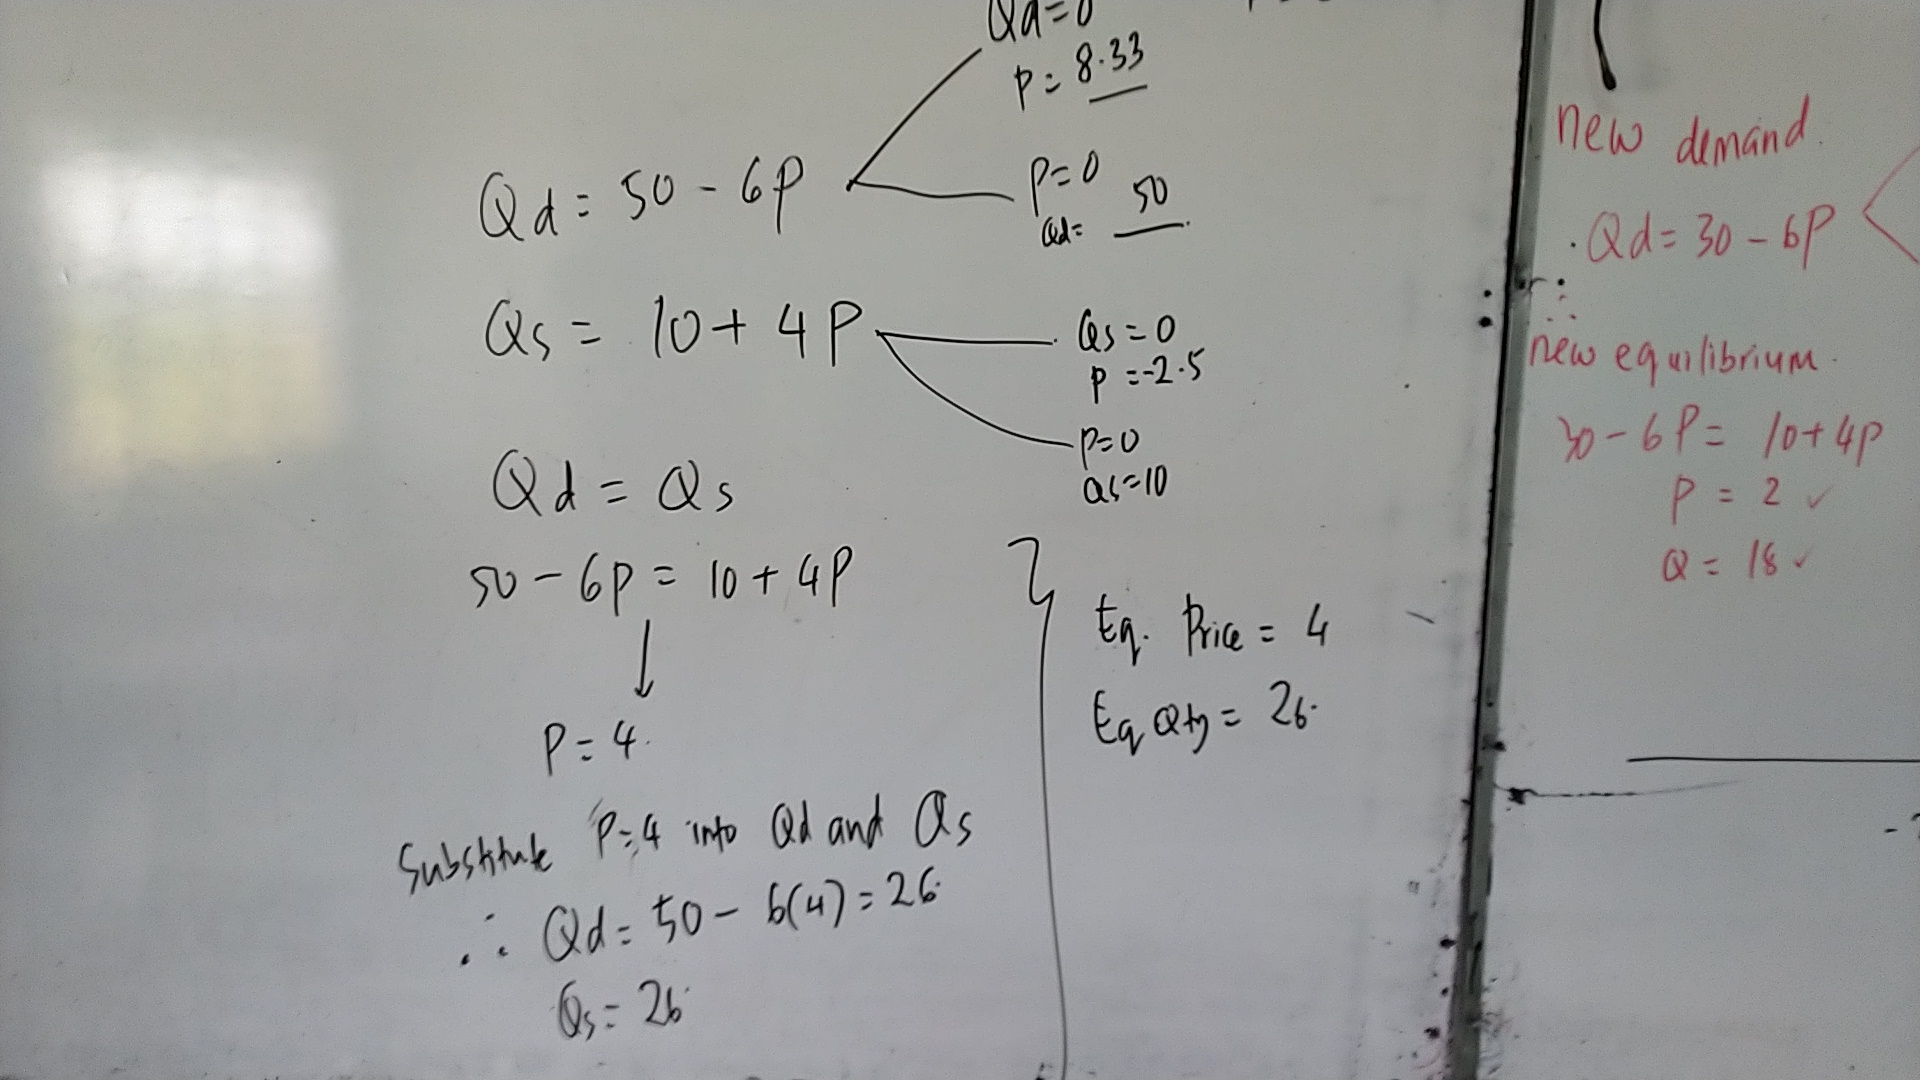 Qd=0
P= 8.33
Qd= 50-6P
P=0
Qd= 50
Qs= 10+4P
Qs=0
P=-2.5
P=0
Qs=10
Qd=Qs
50-6P= 10+4P
P=4.
Substitute P=4 into Qd and Qs
∴ Qd= 50-6(4)=26.
Qs=26
Eq. Price= 4
Eq Qty= 26.
new demand.
Qd=30-6P
new equilibrium.
30-6P= 10+4P
P=2 ✓
Q=18 ✓